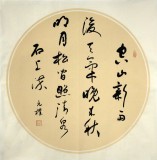 空山新雨
后天气晚来秋
明月松间照清泉
石上流